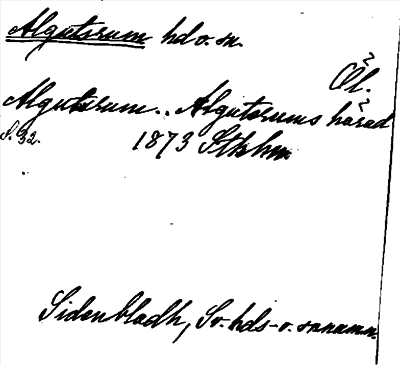 Algutsrum hd o. sn.
Öl.
Algutsrum. Algutsrums härad
S. 32. 1873 Sthlm.
Sidenbladh, Sv. hds- o. sn namn.